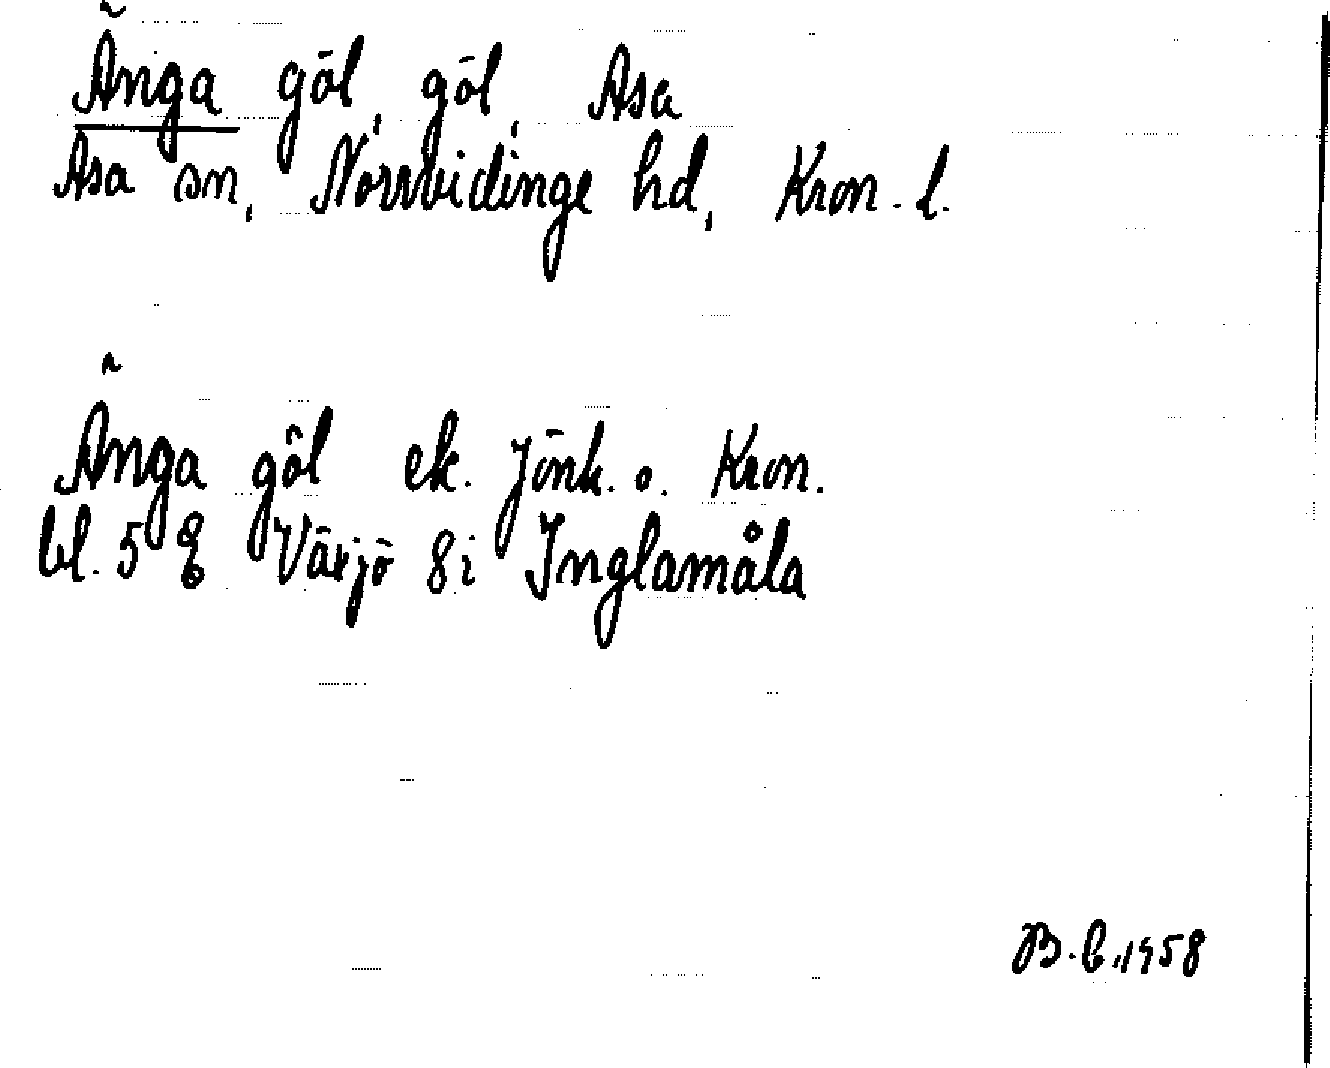 Änga göl, göl, Asa
Asa sn, Norrvidinge hd, Kron. l.
Änga göl ek. Jönk. o. Kron.
bl. 5 E Växjö 8i Inglamåla
B.C. 1958